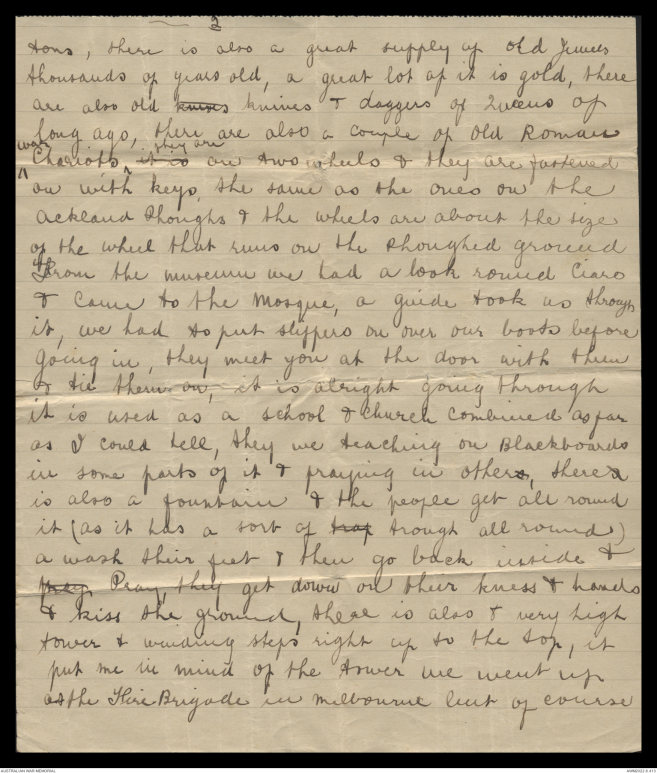 2
tons, there is also a great supply of old Jewels
thousands of years old, a great lot of it is gold, there
are also old knives knives & daggers of Queens of
long ago, there are also a couple of old Roman
war they are
Chariots, it is on two wheels & they are fastened
on with keys, the same as the ones on the
Ackland Ploughs & the wheels are about the size
of the wheel that runs on the ploughed ground
From the museum we had a look round Ciaro
& came to the Mosque, a guide took us through
it, we had to put slippers on over our boots before
going in, they meet you at the door with them
& tie them on, it is alright going through
it is used as a school & church combined as far
as I could tell, they we teaching on Blackboards
in some parts of it & praying in others, there
is also a fountain & the people get all round
it (as it has a sort of trap trough all round)
a wash their feet & then go back inside &
pray Pray, they get down on their kness & hands
& kiss the ground, there is also & very high
tower & winding steps right up to the top, it
put me in mind of the tower we went up
at the Fire Brigade in Melbourne but of course
AUSTRALIAN WAR MEMORIAL